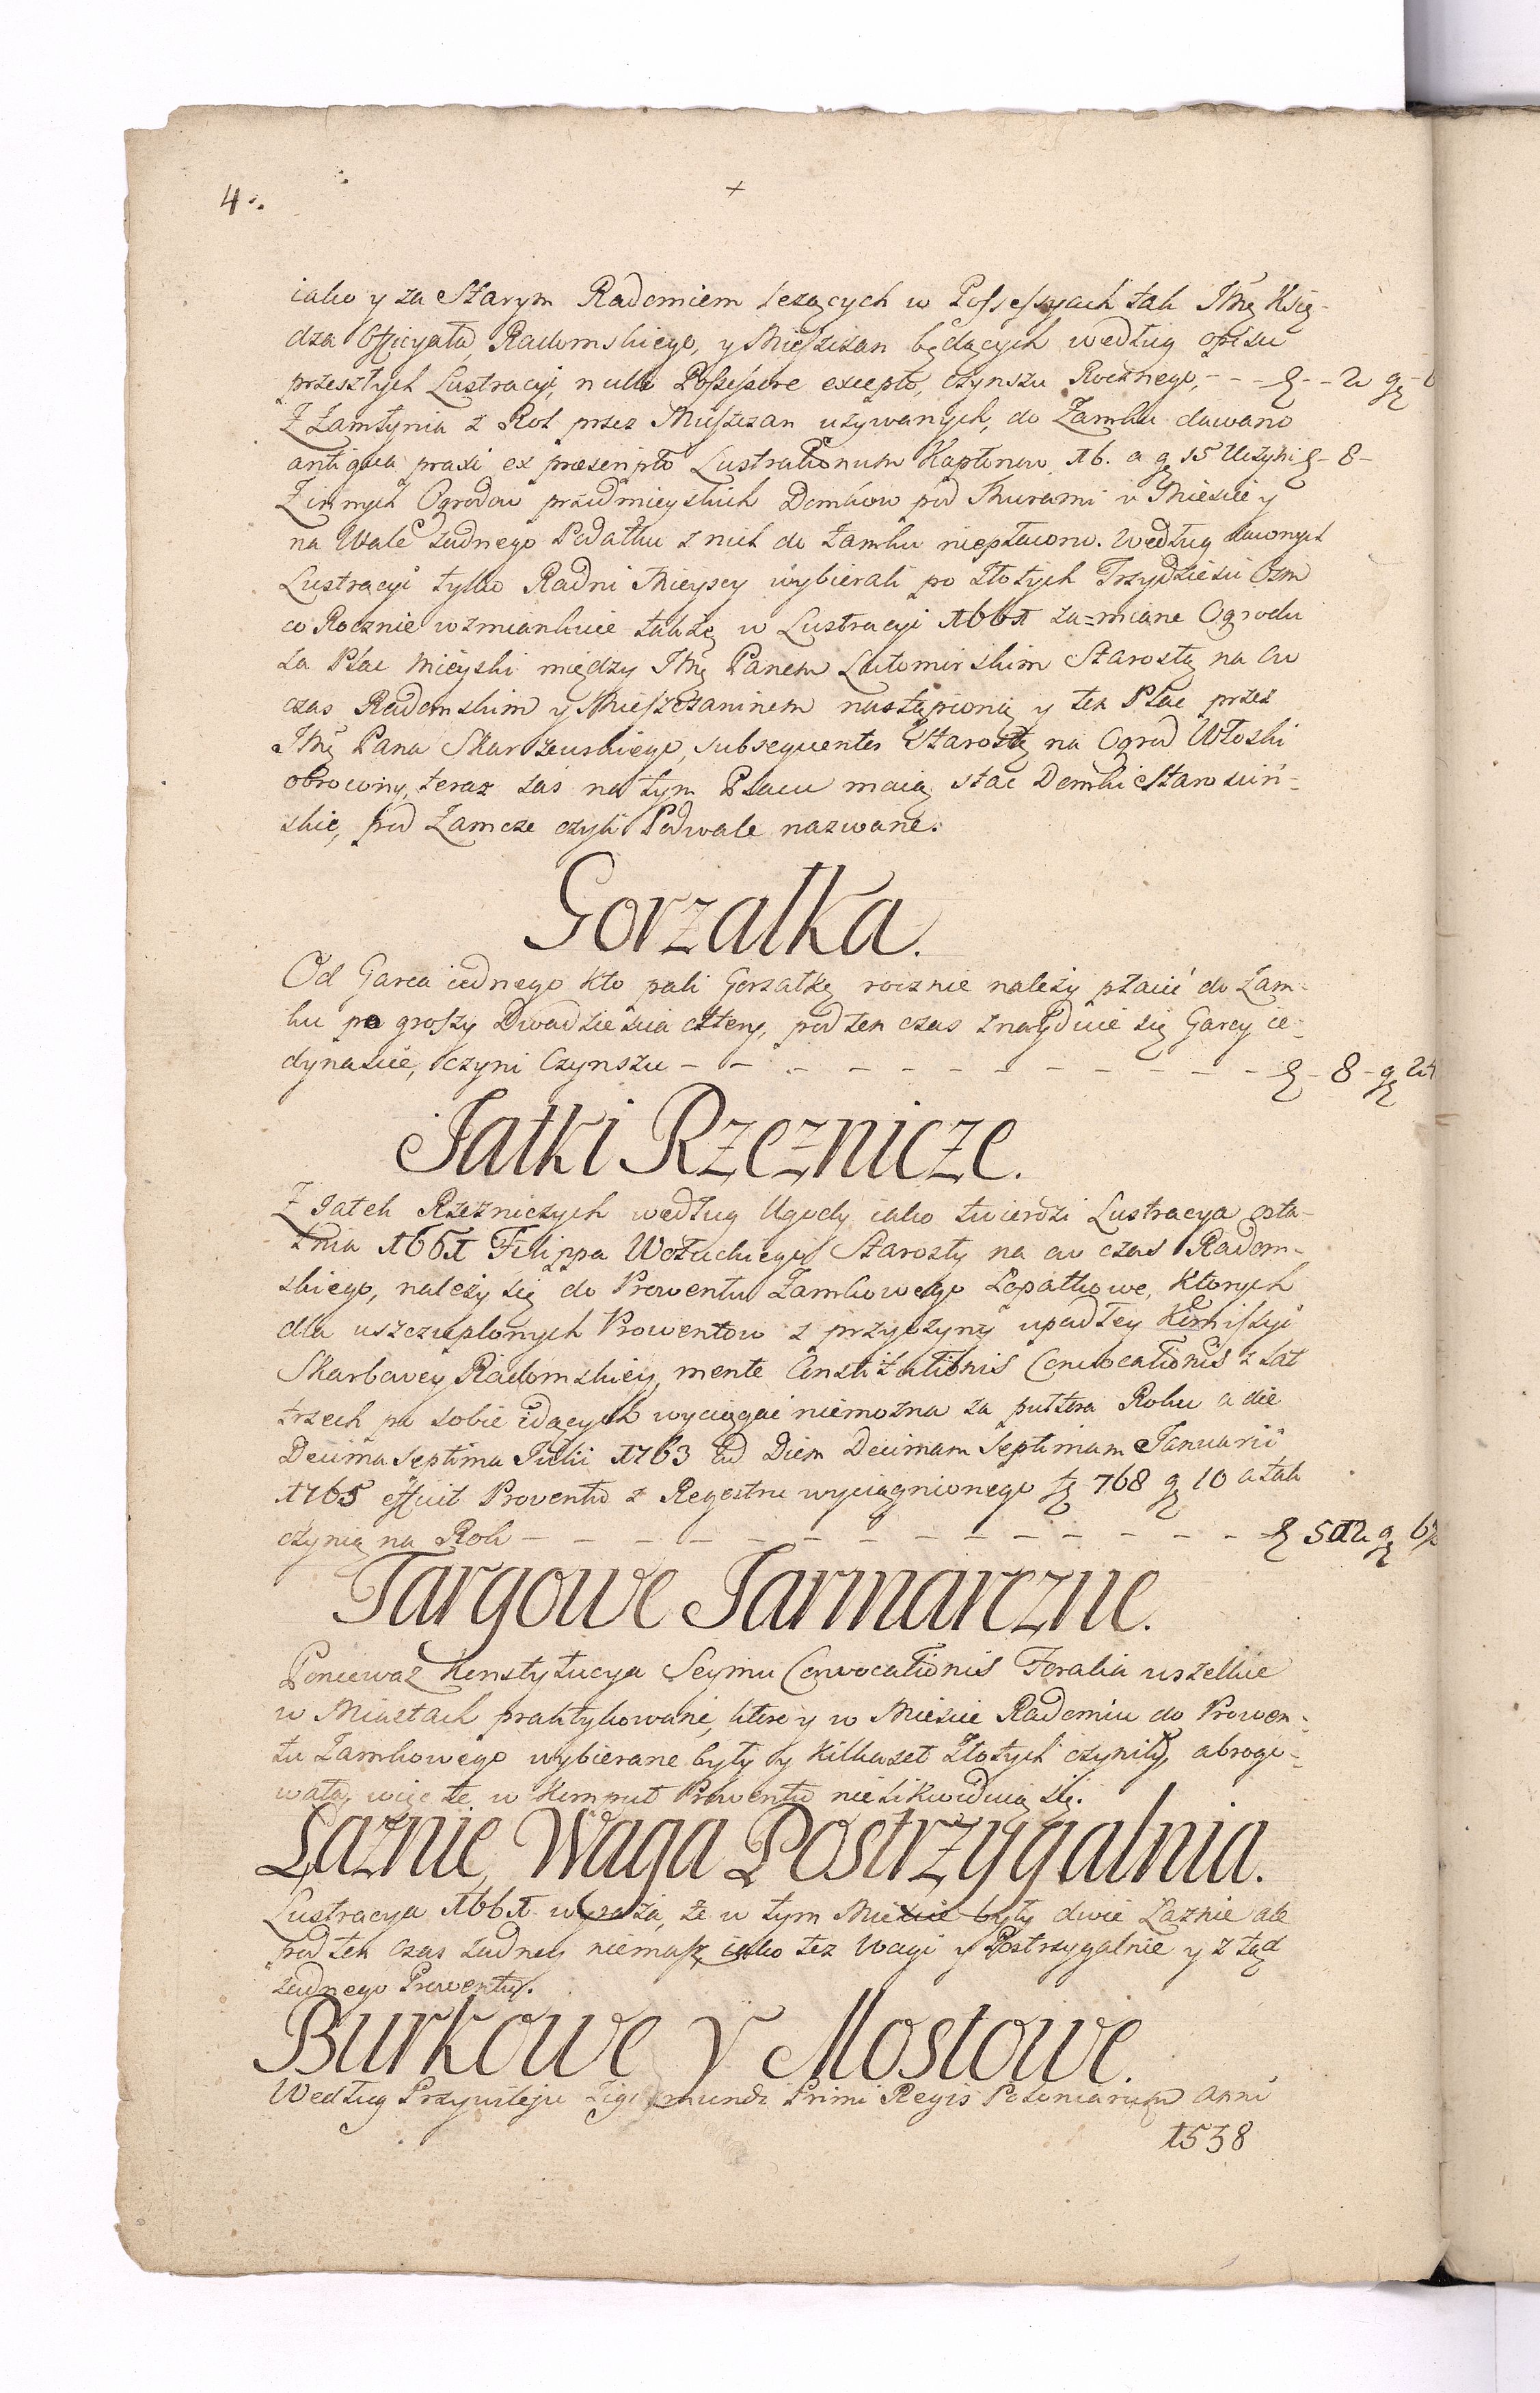 4.
iako y za Starym Radomiem leżących w Possessyach tak Jmę Xię-
dza Officyała Radomskiego, y Mieszczan będących według opisu
przeszłych Lustracyi, nullo Possessore excepto, czynszu Rocznego, - - - - 2 gę
Z Zamłynia z Rol przez Mieszczan używanych, do Zamku dawano
antiqua praxi ex praescripto Lustrationum Kapłonow 16. a gę 15 Uczyni - 8 -
Z innych Ogrodow przedmieyskich Domkow pod Murami w Mieście y
na Wale żadnego Podatku z nich do Zamku niepłacono. Według dawnych
Lustracyi tylko Radni Mieyscy wybierali po Złotych Trzydzieści Ośm
co Rocznie wzmiankuie także w Lustracyi 1661 za=miane Ogrodu
za Plac Mieyski między Jmę Panem Lutomirskim Starostą na on
czas Radomskim y Mieszczaninem nastąpioną y ten Plac przez
Jmę Pana Skarszewskiego, subsequenter Starostę na Ogrod Włoski
obrocony, teraz zaś na tym Placu maią stać Domki Starościń-
skie, pod Zamcze czyli Podwale nazwane.
Gorzałka.
Od Garca iednego kto pali Gorzałkę rocznie należy płacić do Zam-
ku po groszy Dwadzieścia cztery, pod ten czas znayduie się Garcy ie-
dynaście, czyni Czynszu - - - - - - - - - - - - 8 - gę 24
Jatki Rzeznicze.
Z Jatek Rzezniczych według Ugody iako twierdzi Lustracya osta-
tnia 1661 Filippa Wołuckiego Starosty na on czas Radom-
skiego, należy się do Prowentu Zamkowego Łopatkowe, Ktorych
dla uszczuplonych Prowentow z przyczyny upadłey Kommissyi
Skarbowey Radomskiey, mente Constitutionis Convocationis z lat
trzech po sobie idących wyciągać niemożna za pułtora Roku a die
Decima Septima Julii 1763 ad Diem Decimam Septimam Januarii
1765 effuit Proventu z Regestru wyciągnionego 768 gę 10 a tak
czynią na Rok - - - - - - - - - - - - - 512 gę 6
Targowe Jarmarczne.
Ponieważ Konstytucya Seymu Convocationis Foralia wszelkie
w Miastach praktykowane, ktore y w Mieście Radomiu do Prowen-
tu Zamkowego wybierane były y kilkaset Złotych czyniły, abrogo-
wała, więc te w Komput Prowentu nie likwiduią się.
Łaznie, Waga Postrzygalnia.
Lustracya 1661 wyraża, że w tym Mieście były dwie Łaznie ale
pod ten czas żadney niemasz, iako też Wagi y Postrzygalnie y z tąd
żadnego Prowentu.
Burkowe y Mostowe.
Według Przywileju Sigismundi Primi Regis Poloniarum Anni
1538